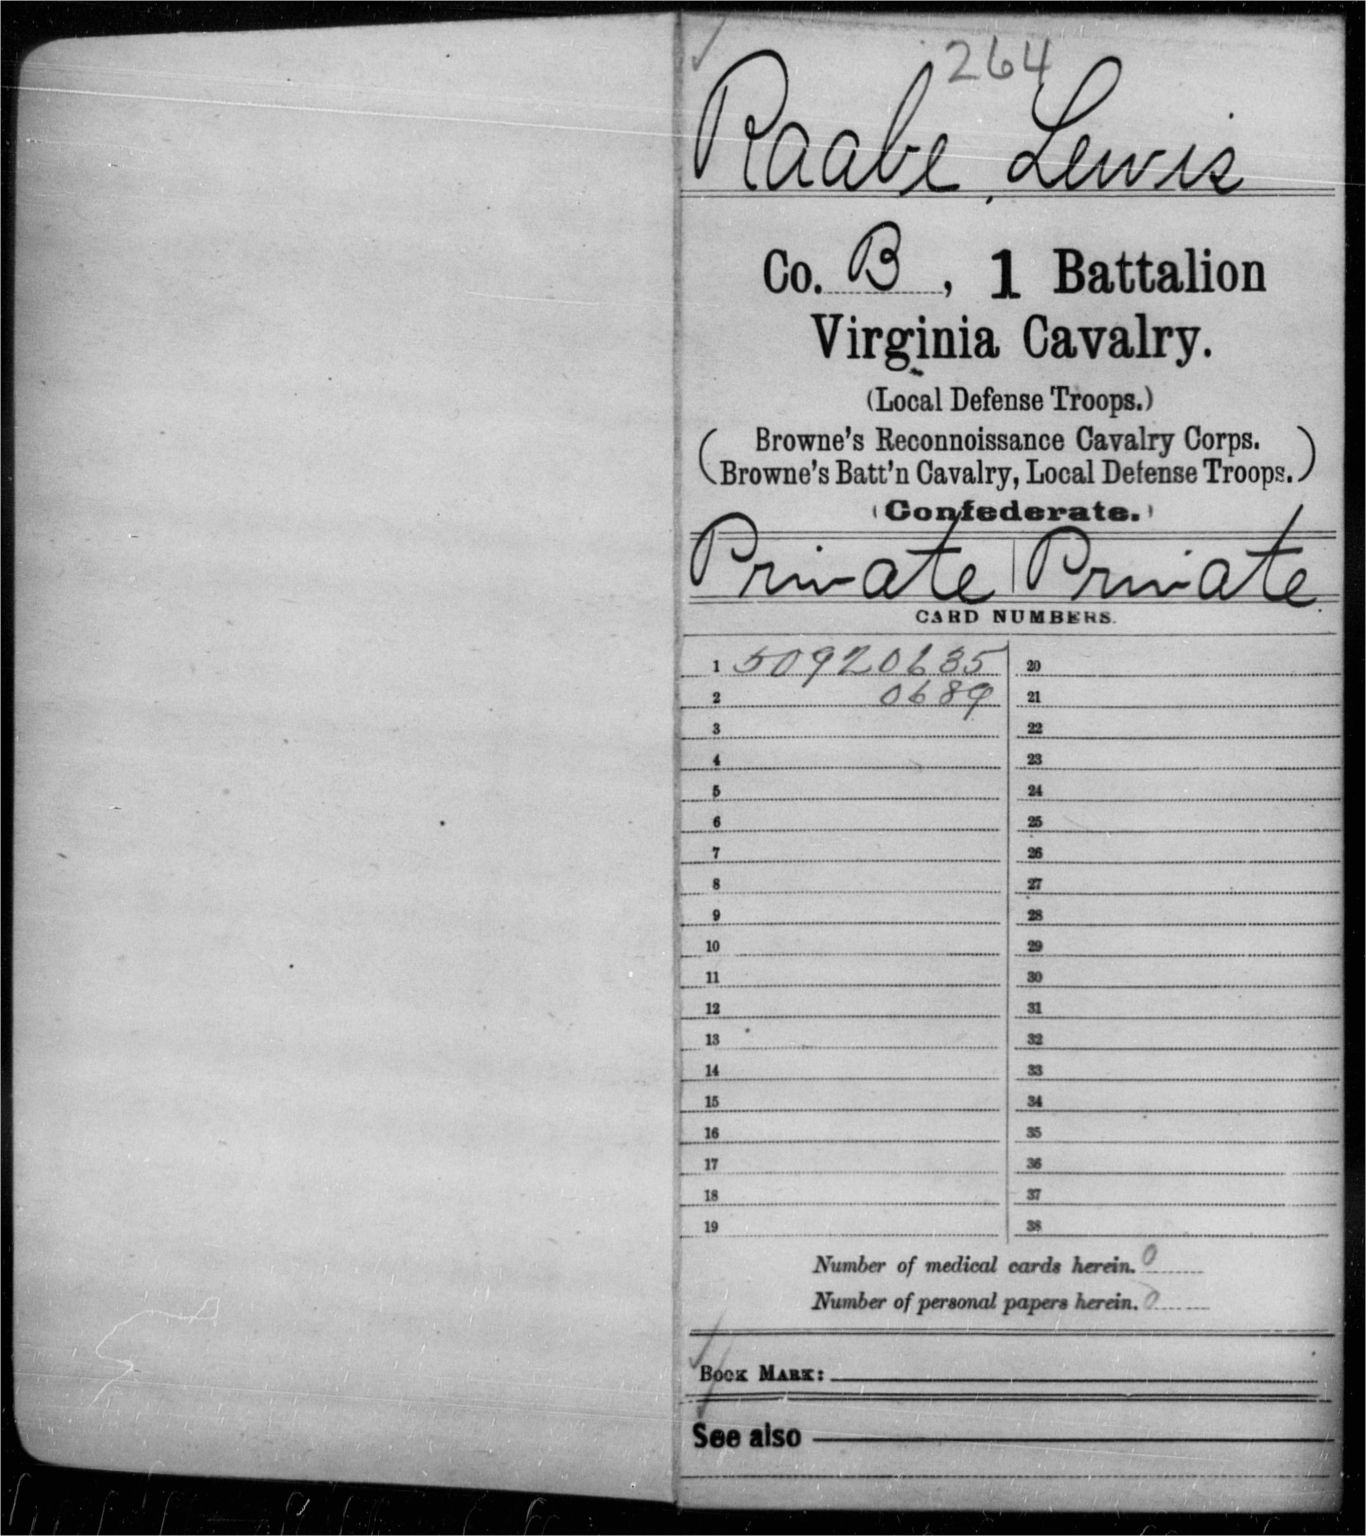 264
Raabe, Lewis
Co. B, 1 Battalion
Virginia Cavalry.
(Local Defense Troops.)
(Browne's Reconnoissance Cavalry Corps.
Browne's Batt'n Cavalry, Local Defense Troops.)
(Confederate.)
Private | Private
CARD NUMBERS.
1 50920635 20
2 0689 21
3 22
4 23
5 24
6 25
7 26
8 27
9 28
10 29
11 30
12 31
13 32
14 33
15 34
16 35
17 36
18 37
19 38
Number of medical cards herein. 0
Number of personal papers herein. 0
BOOK MARK:
See also